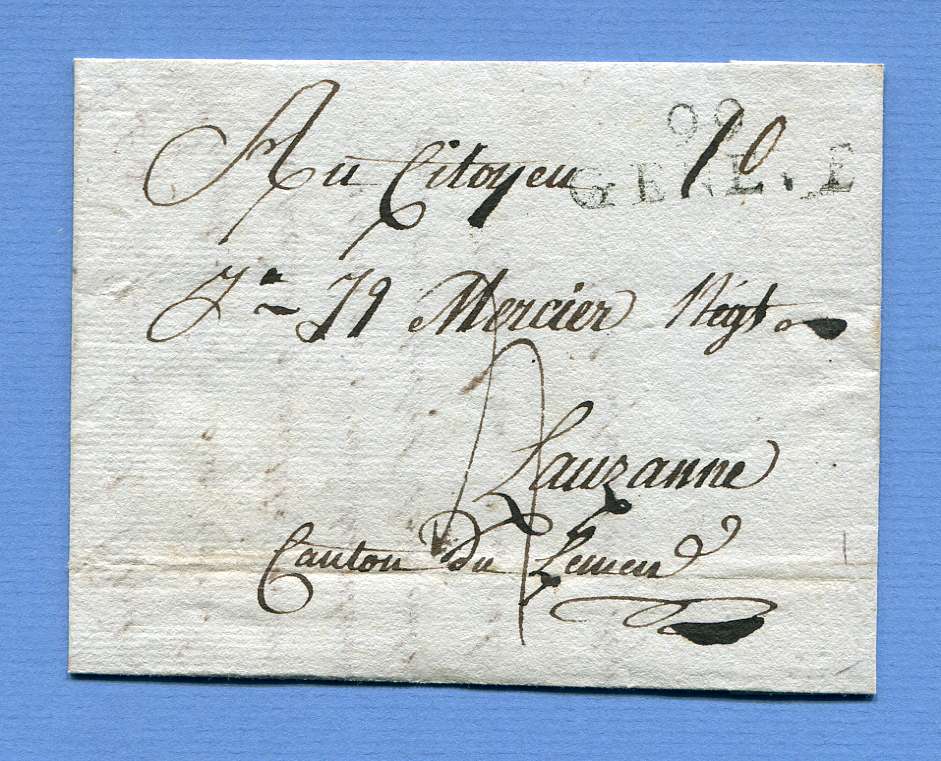 99
GENEVE
10
Au Citoyen
Mercier Négt
Lauzanne
Canton Du Leman